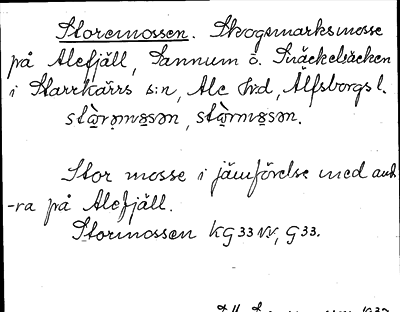 Storemossen. Skogsmarksmosse
på Alefjäll, Sannum o. Snäckelsäcken
i Starrkärrs s:n, Ale hrd, Älfsborgs l.
Stor mosse i jämförelse med and-
-ra på Alefjäll.
Stormossen KG 33 NV, G 33.